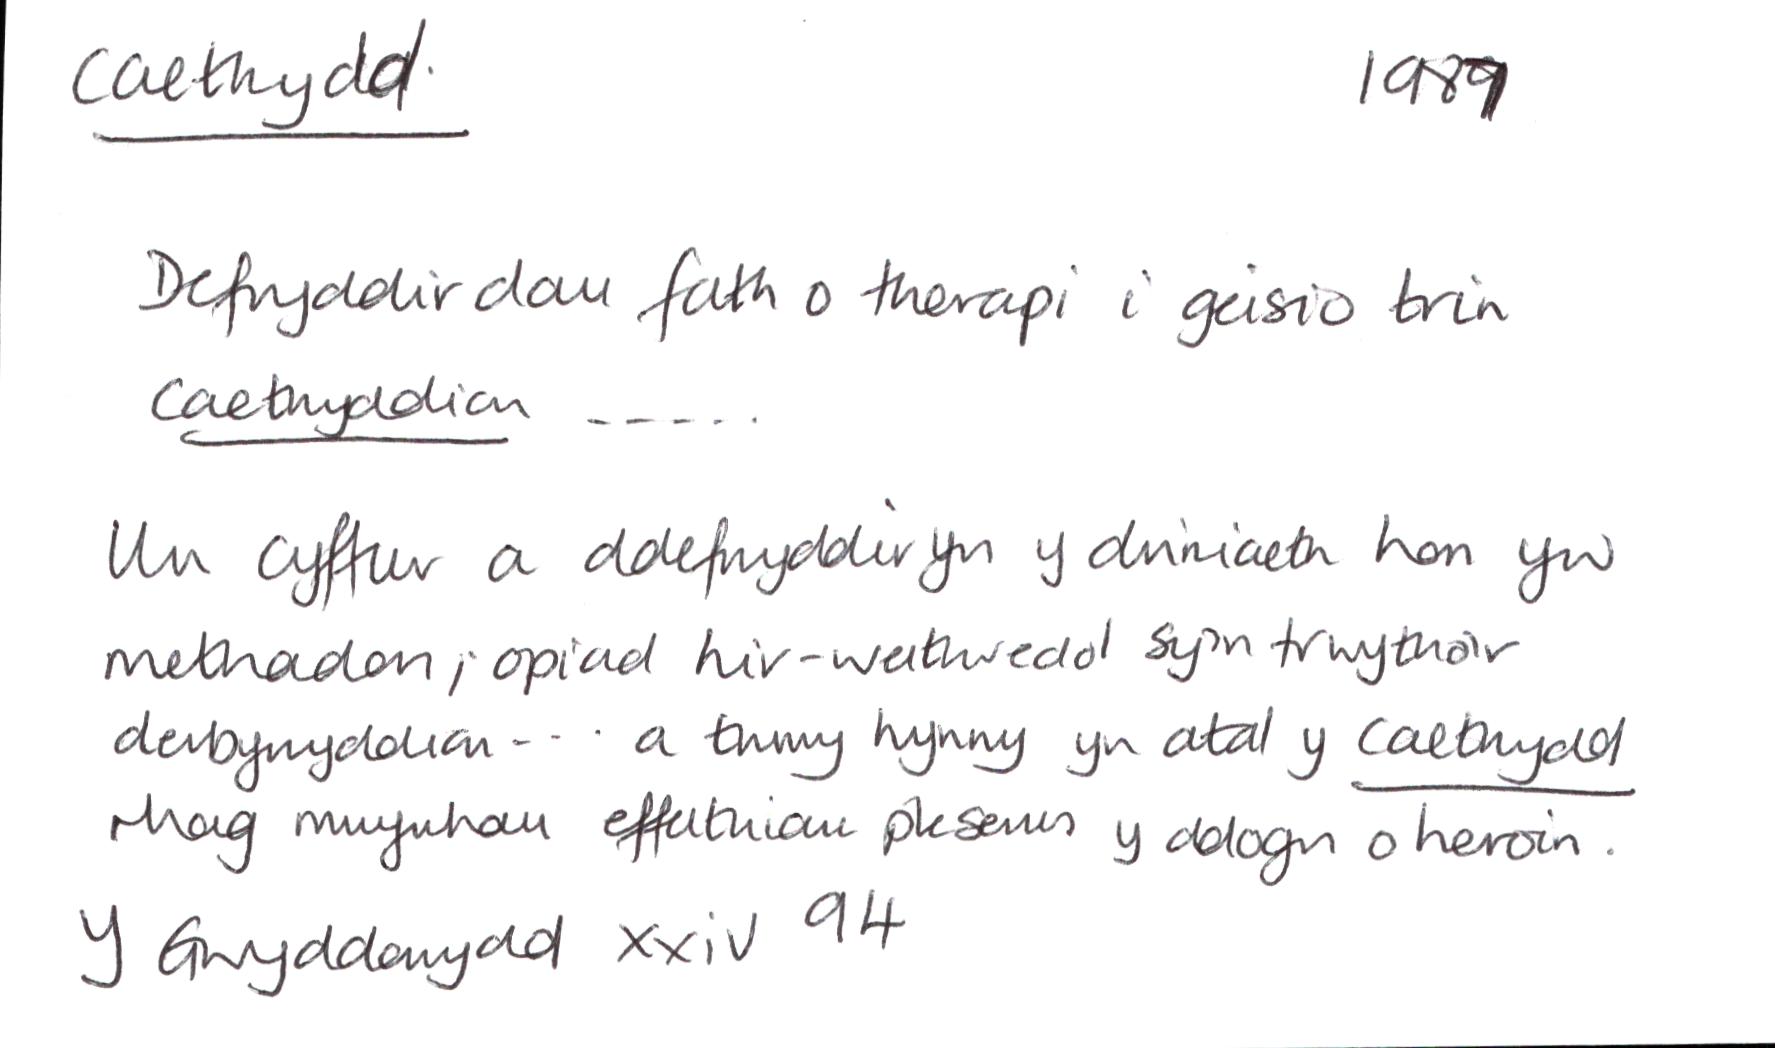 Caethydd. 1987
Defnyddir dau fath o therapi i geisio trin
Caethyddion -----.
Un cyffur a ddefnyddir yn y driniaeth hon yw
methadon; opiad hir-weithredol sy'n trwytho'r
derbynyddion --- . a thrwy hynny yn atal y Caethydd
rhag mwynhau effeithiau pleserus y ddogn o heroin.
Y Gwyddonydd xxiv 94